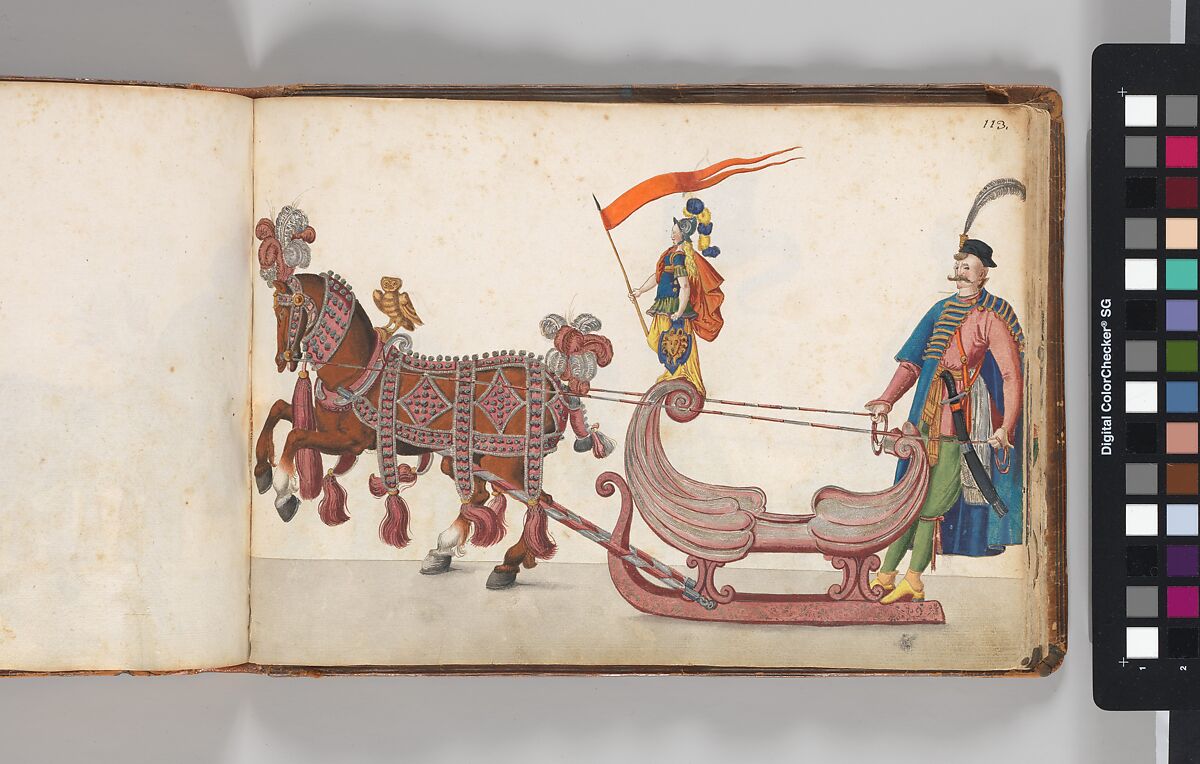 113.
Digital ColorChecker® SG
1
2